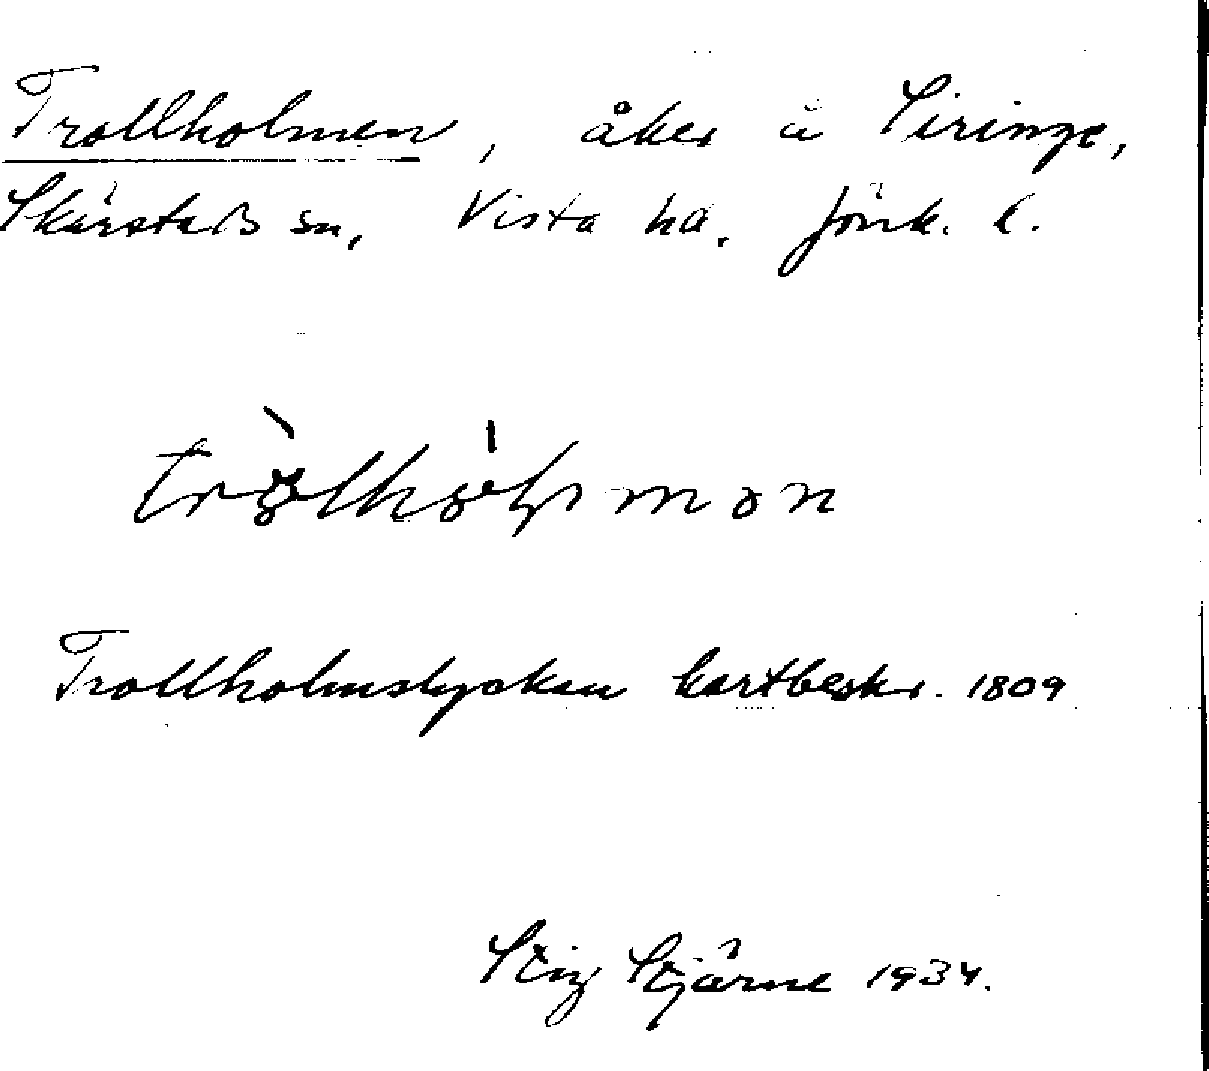 Trollholmen, åker å Siringe,
Skärstads sn, Vista hd. Jönk. l.
Trollholmslyckan kartbeskr. 1809
Stig Stjärne 1934.